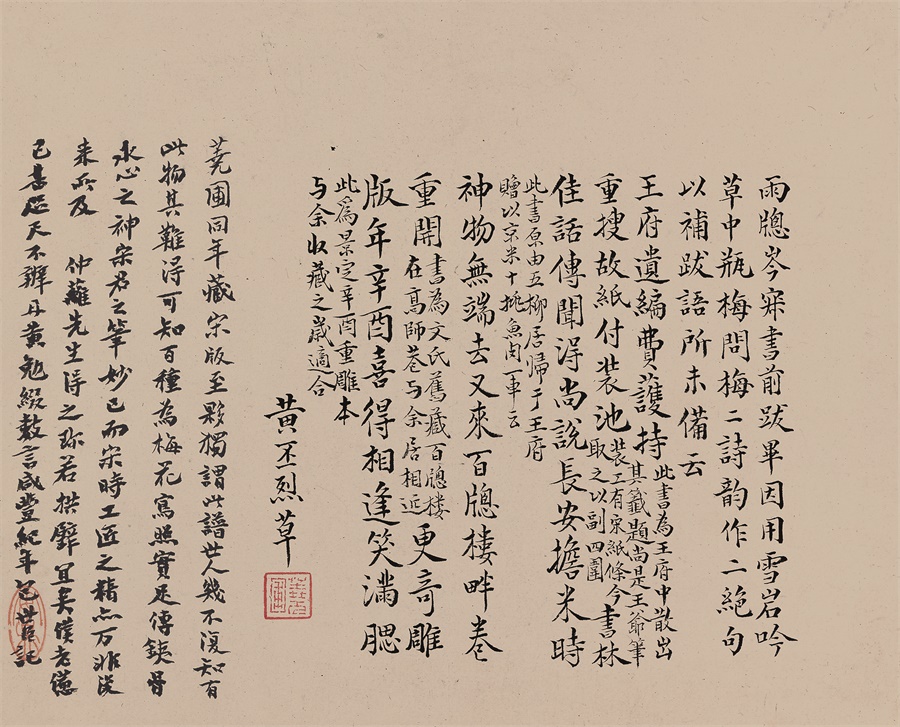 雨牕岑寂書前跋畢因用雪岩吟
草中瓶梅問梅二詩韵作二絶句
以補跋語所未備云
王府遺編費護持此書為王府中散出
其籤題尚是王爺筆
重搜故紙付裝池裝工有宋紙條今
取之以副四圍
書林
佳話傳聞淂尚說長安擔米時
此書原由五柳居歸于王府
贈以京米十挑魚肉一車云
神物無端去又來百牕樓畔卷
重開書為文氏舊藏百牕樓
在髙師巷与余居相近
更奇雕
版年辛酉喜得相逢笑滿腮
此爲景定辛酉重雕本
与余收藏之歲適合
黃丕烈草
蕘圃同年藏宋版至夥獨謂此譜世人幾不復知有
此物其難淂可知百種為梅花寫照實足傳銕骨
冰心之神宋君之筆妙已而宋時工匠之精亦万非後
来所及 仲蘿先生淂之珎若拱璧宜矣僕老憊
已甚天不辦丹黃勉綴數言咸豐紀年包世臣記